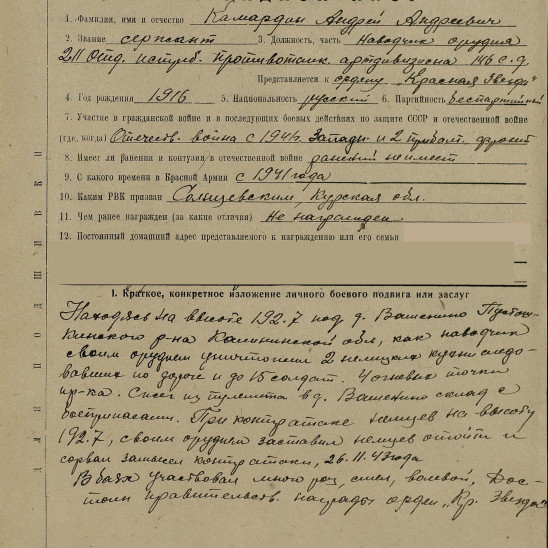 1. Фамилия, имя и отчество Камардин Андрей Андреевич
2. Звание сержант 3. Должность, часть Наводчик орудия
211 Отд. истреб. противотанк. артдивизиона 146 с.д.
Представляется к ордену "Красная Звезда"
4. Год рождения 1916 5. Национальность русский 6. Партийность Беспартийный
7. Участие в гражданской войне и в последующих боевых действиях по защите СССР и отечественной войне
(где, когда) Отечеств. война с 194 г. Западн и 2 Прибалт. фронт
8. Имеет ли ранения и контузии в отечественной войне ранений не имеет
9. С какого времени в Красной Армии с 1941 года
10. Каким РВК призван Солнцевским, Курская обл.
11. Чем ранее награжден (за какие отличия) Не награжден
12. Постоянный домашний адрес представляемого к награждению или его семьи
I. Краткое, конкретное изложение личного боевого подвига или заслуг
Находясь на высоте 192.7 под д. Вашенино Пустош-
кинского р-на Калининской обл, как наводчик
своим орудием уничтожил 2 немецких кухни следо-
вавших по дороге и до 15 солдат. 4 огневых точки
пр-ка. Сжег из в д. Вашенино склад с
боеприпасами. При контратаке немцев на высоту
192.7, своим орудием заставил немцев отойти и
сорвал замысел контратаки, 26.11.43 года
В боях участвовал много раз, смел, волевой, Дос-
тоин правительств. награды орден "Кр. Звезда"
ДЛЯ ПОДШИВКИ